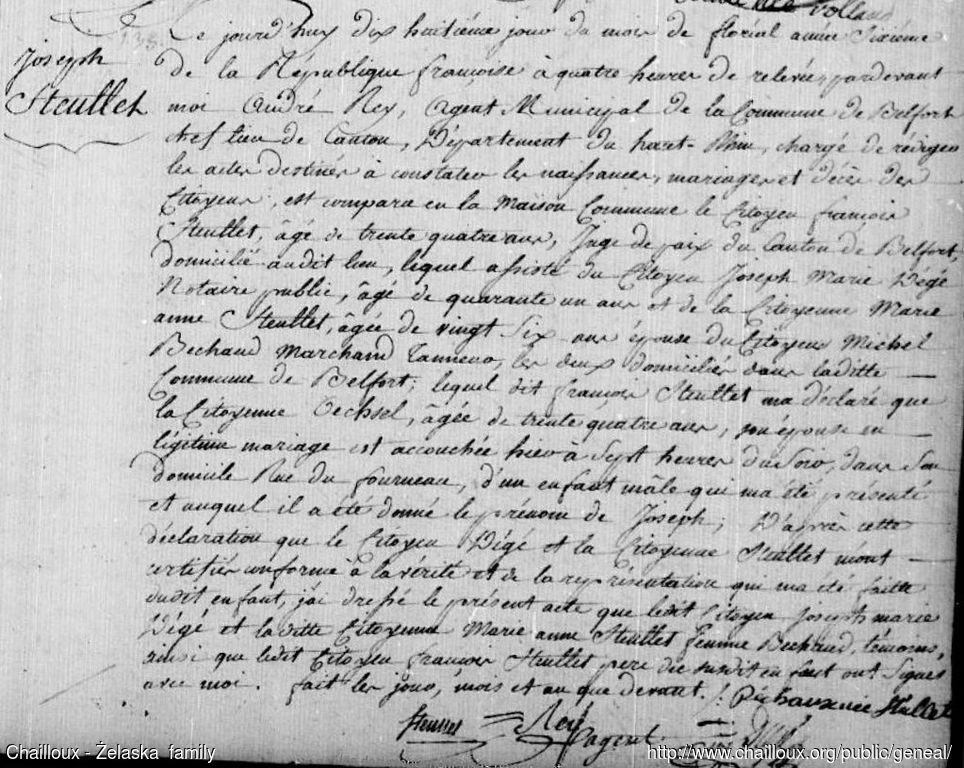 Volland
138.
Joseph
Steullet
Ce jourd'huy dix huitième jour du mois de floréal année Sixième
de la République françoise à quatre heures de relevée, pardevant
moi André Rey, Agent Municipal de la Commune de Belfort
chef lieu de Canton, Département du haut-Rhin, chargé de rédiger
les actes destinés à constater les naissances, mariages et décès des
Citoyens, est comparu en la Maison Commune le Citoyen françois
Steullet, âgé de trente quatre ans, Juge de paix du Canton de Belfort,
domicilié audit lieu, lequel assisté du Citoyen Joseph Marie Végé
Notaire public, âgé de quarante un ans et de la Citoyenne Marie
anne Steullet, âgée de vingt Six ans épouse du Citoyen Michel
Bechaud Marchand Tanneur, les deux domiciliés dans laditte
Commune de Belfort; lequel dit françois Steullet m'a déclaré que
la Citoyenne Oechsel, âgée de trente quatre ans, son épouse en
légitime mariage est accouchée hier à Sept heures du Soir, dans Son
domicile Rue du fourneau, d'un enfant mâle qui m'a été présenté
et auquel il a été donné le prénom de Joseph; D'après cette
déclaration que le Citoyen Végé et la Citoyenne Steullet m'ont
certifiés conforme à la vérité et de la représentation qui m'a été faitte
dudit enfant, j'ai dressé le présent acte que ledit Citoyen Joseph marie
Végé et laditte Citoyenne Marie anne Steullet femme Bechaud, témoins,
ainsi que ledit Citoyen françois Steullet pere du susdit enfant ont Signés
avec moi. fait les jour, mois et an que devant.
née Stullet
Steullet Rey
agent
Chailloux - Żelaska family
http://www.chailloux.org/public/geneal/